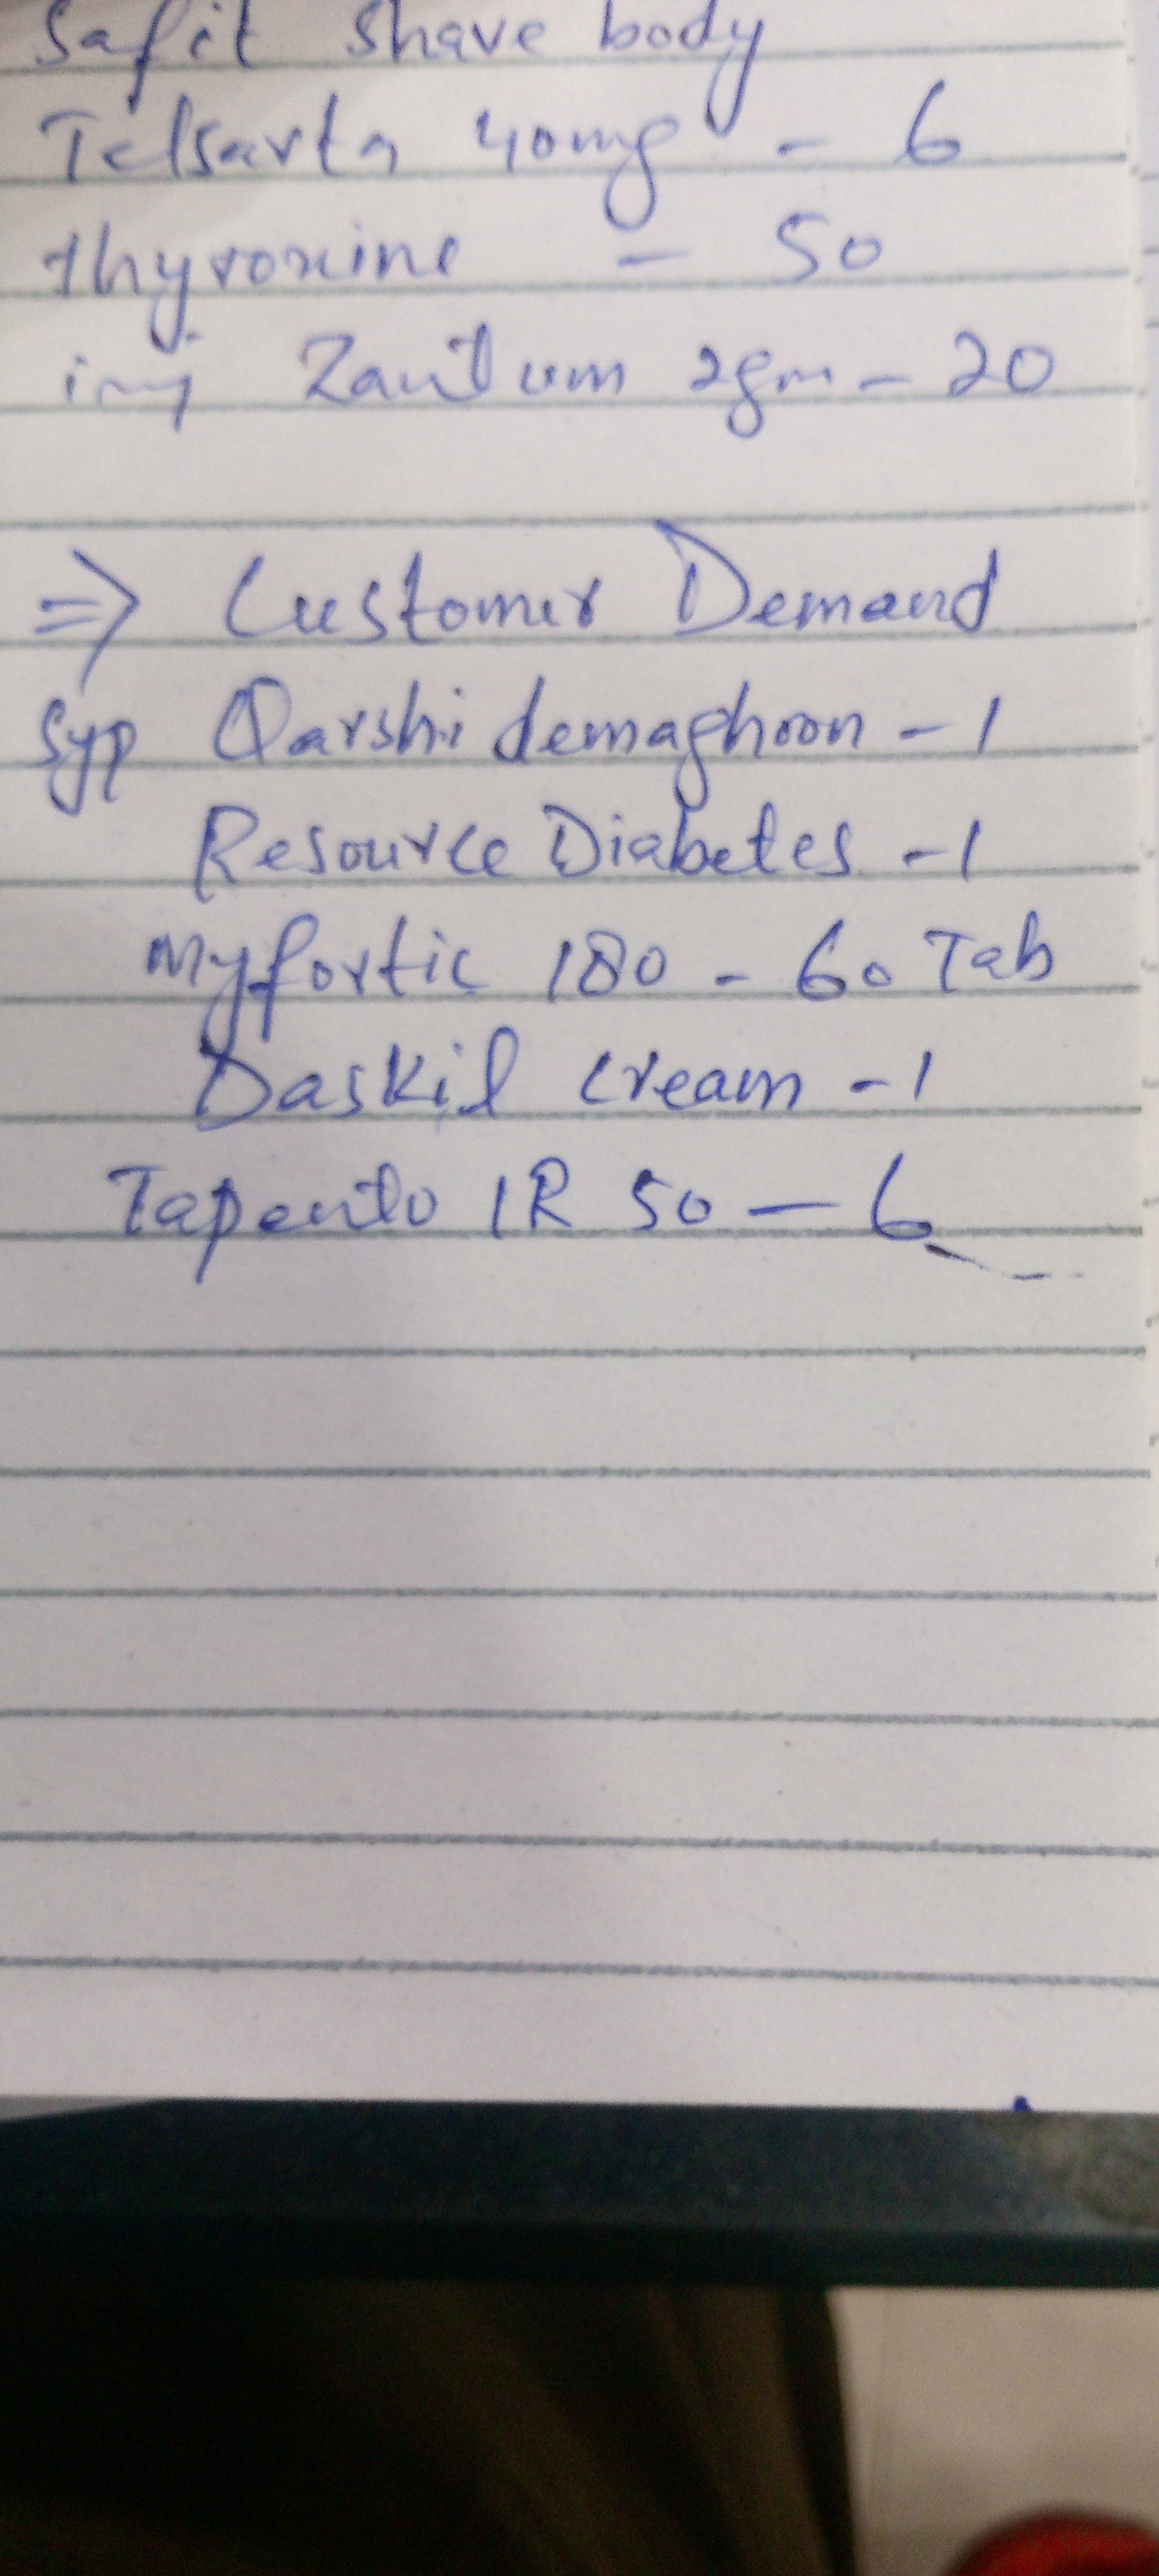 Safit shave body
Telsarta 40mg - 6
thyroxine - 50
inj Zantum 2gm - 20
=> Customer Demand
Syp Qarshi demaghoon - 1
Resource Diabetes - 1
Myfortic 180 - 60 Tab
Daskil cream - 1
Tapento IR 50 - 6